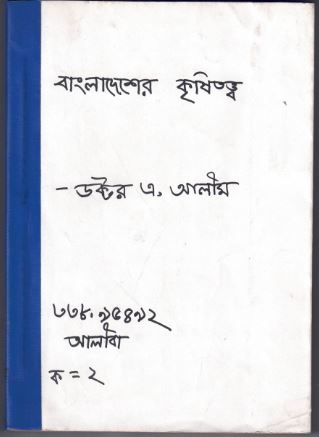 বাংলাদেশের কৃষিতত্ত্ব
- ডক্টর এ. আলীম
৩৩৮.৯৫৪৯২
আলীবা
ক = ২